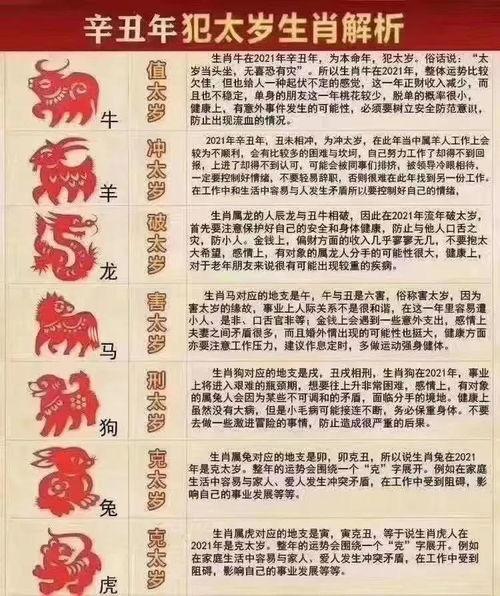 辛丑年犯太岁生肖解析
牛
值太岁
生肖牛在2021年辛丑年，为本命年，犯太岁。俗话说：“太
岁当头坐，无喜恐有灾”。所以生肖牛在2021年，整体运势比较
欠佳，但也给人一种起伏不定的感觉，这一年正财收入减少，而
且也不稳定，单身的朋友这一年桃花较少，脱单的概率很小，
健康上，有意外事件发生的可能性，必须要树立安全防范意识，
防止出现流血的情况。
羊
冲太岁
2021年辛丑，丑未相冲，为冲太岁，在此年当中属羊人工作上会
较为不顺利，会有比较多的困难与坎坷，自己努力工作了却得不到回
报，上进了却得不到认可，可能会被同事们排挤，被领导冷眼相待，
一定要控制好情绪，不要轻易辞职，否则很难在此年找到另一份工作。
在工作中和生活中容易与人发生矛盾所以要控制好自己的情绪，
龙
破太岁
生肖属龙的人辰龙与丑牛相破，因此在2021年流年破太岁，
首先要注意保护好自己的安全和身体健康，防止与他人口舌之
灾，防小人。金钱上，偏财方面的收入几乎寥寥无几，不要抱太
大希望，感情上，有对象的属龙人分手的可能性很大，健康上，
对于老年朋友来说很有可能出现较重的疾病。
马
害太岁
生肖马对应的地支是午，午与丑是六害，俗称害太岁，因为
害太岁的缘故，事业上人际关系不是很和谐，在这一年里容易遭
小人、是非、口舌官非等；金钱上会遇到一些意外支出，感情上
夫妻之间矛盾很多，而且婚外情出现的可能性也挺大，健康方面
亦要注意工作压力，建议作息定时，多做运动强身健体。
狗
刑太岁
生肖狗对应的地支是戌，丑戌相刑，生肖狗在2021年，事业
上将进入艰难的瓶颈期，想要往上升非常困难，感情上，有对象
的属兔人会因为某些不可调和的矛盾，面临分手的境地。健康上
虽然没有大病，但是小毛病可能接连不断，务必保重身体。不要
去做一些激进冒险的事情，防止造成很严重的后果。
兔
克太岁
生肖属兔对应的地支是卯，卯克丑，所以说生肖兔在2021
年是克太岁。整年的运势会围绕一个“克”字展开。例如在家庭
生活中容易与家人、爱人发生冲突矛盾，在工作中受到阻碍，影
响自己的事业发展等等。
虎
克太岁
生肖属虎对应的地支是寅，寅克丑，等于说生肖虎人在
2021年是克太岁。整年的运势会围绕一个“克”字展开。例如
在家庭生活中容易与家人、爱人发生冲突矛盾，在工作中受到
阻碍，影响自己的事业发展等等。